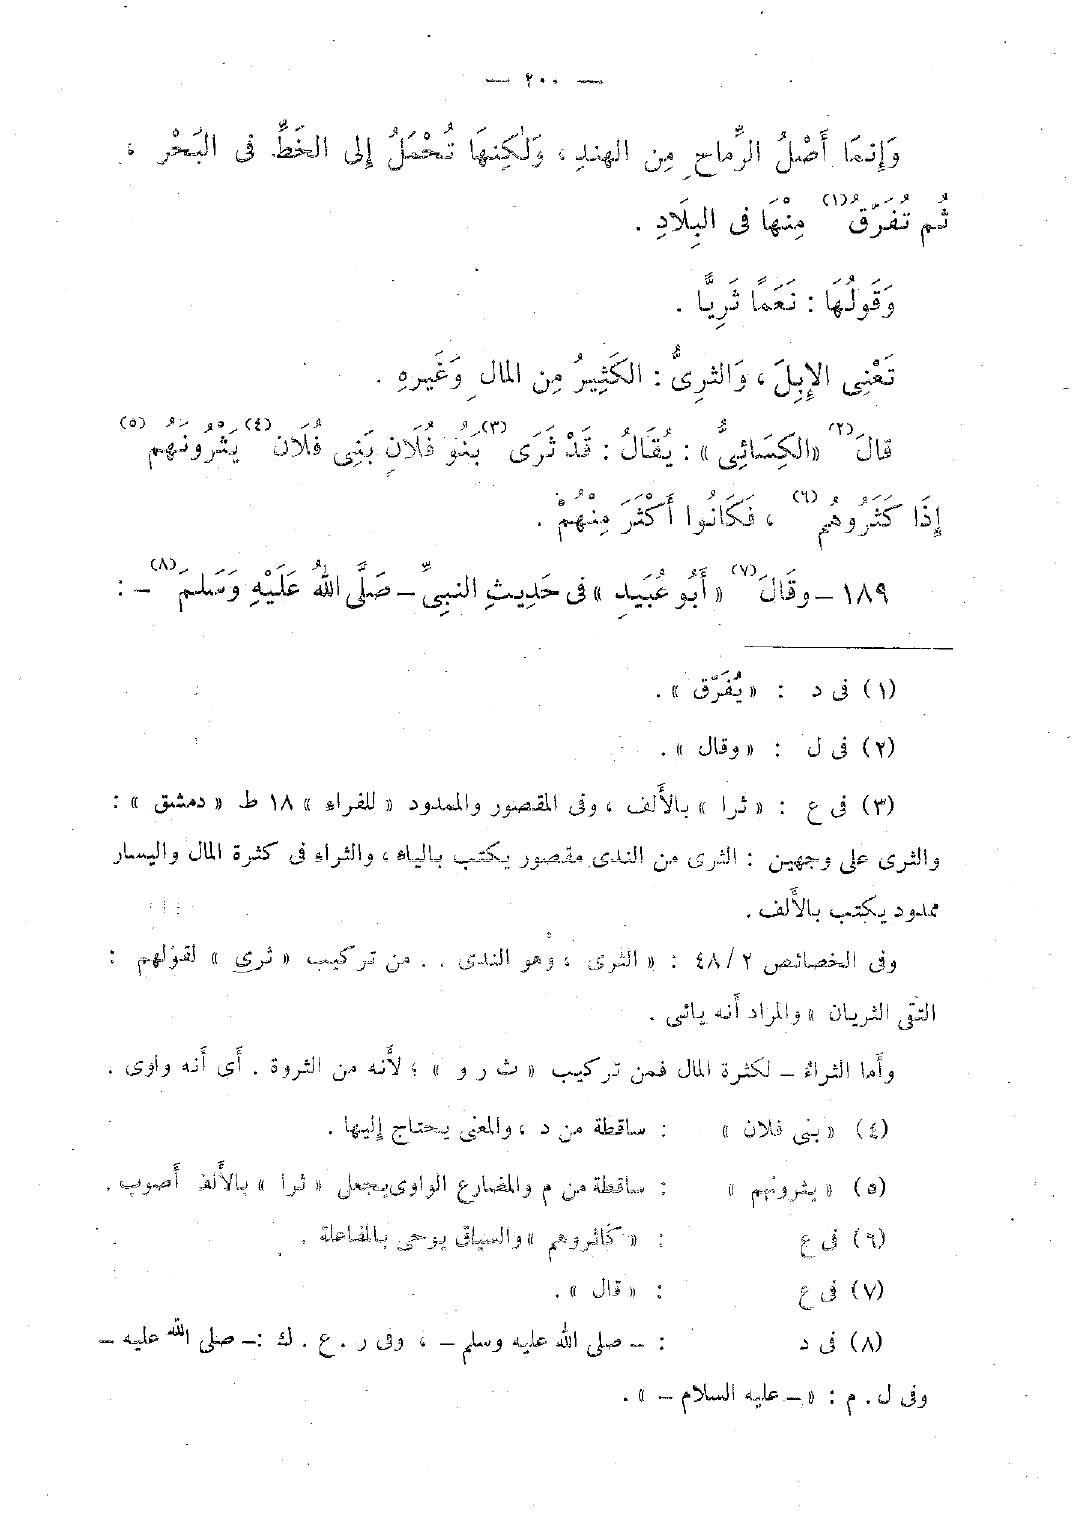 — ٢٠٠ —
وَإِنمَا أَصْلُ الرِّماحِ مِن الهندِ، وَلٰكِنهَا تُحْمَلُ إِلى الخَطِّ فى البَحْرِ ،
ثُم تُفَرّقُ(١) مِنْهَا فى البِلَادِ .
وَقَولُهَا : نَعَمًا ثَرِيًّا .
تَعْنِى الإِبِلَ ، وَالثرِىُّ : الكَثِيرُ مِن المال وَغَيرهِ .
قالَ(٢) «الكِسَائِىُّ» : يُقَالُ : قَدْ ثَرَى(٣) بَنُو فُلَانٍ بَنِى فُلَان(٤) يَثْرُونَهم(٥)
إِذَا كَثَرُوهُم(٦) ، فَكَانُوا أَكْثَرَ مِنْهُمْ .
١٨٩ – وقَالَ(٧) « أَبُو عُبَيدٍ » فى حَدِيثِ النبِىِّ – صَلَّى اللهُ عَلَيْهِ وَسَلمَ(٨) – :
(١) فى د : «يُفَرّق» .
(٢) فى ل : «وقال» .
(٣) فى ع : « ثرا » بالأَلف ، وفى المقصور والممدود « للفراء » ١٨ ط « دمشق » :
والثرى على وجهين : الثرى من الندى مقصور يكتب بالياء ، والثراء فى كثرة المال واليسار
ممدود يكتب بالأَلف .
وفى الخصائص ٢/ ٤٨ : « الثرى ، وهو الندى . . من تركيب « ثرى » لقولهم :
التقى الثريان » والمراد أنه يائى .
وأَما الثراءُ – لكثرة المال فمن تركيب « ث ر و » ؛ لأَنه من الثروة . أَى أَنه واوى .
(٤) « بنى فلان » : ساقطة من د ، والمعنى يحتاج إليها .
(٥) « يثرونهم » : ساقطة من م والمضارع الواوى يجعل « ثرا » بالأَلف أَصوب .
(٦) فى ع : « كاثروهم » والسياق يوحى بالمفاعلة .
(٧) فى ع : « قال » .
(٨) فى د : – صلى الله عليه وسلم – ، وفى ر . ع . ك :– صلى الله عليه –
وفى ل . م : « – عليه السلام – » .